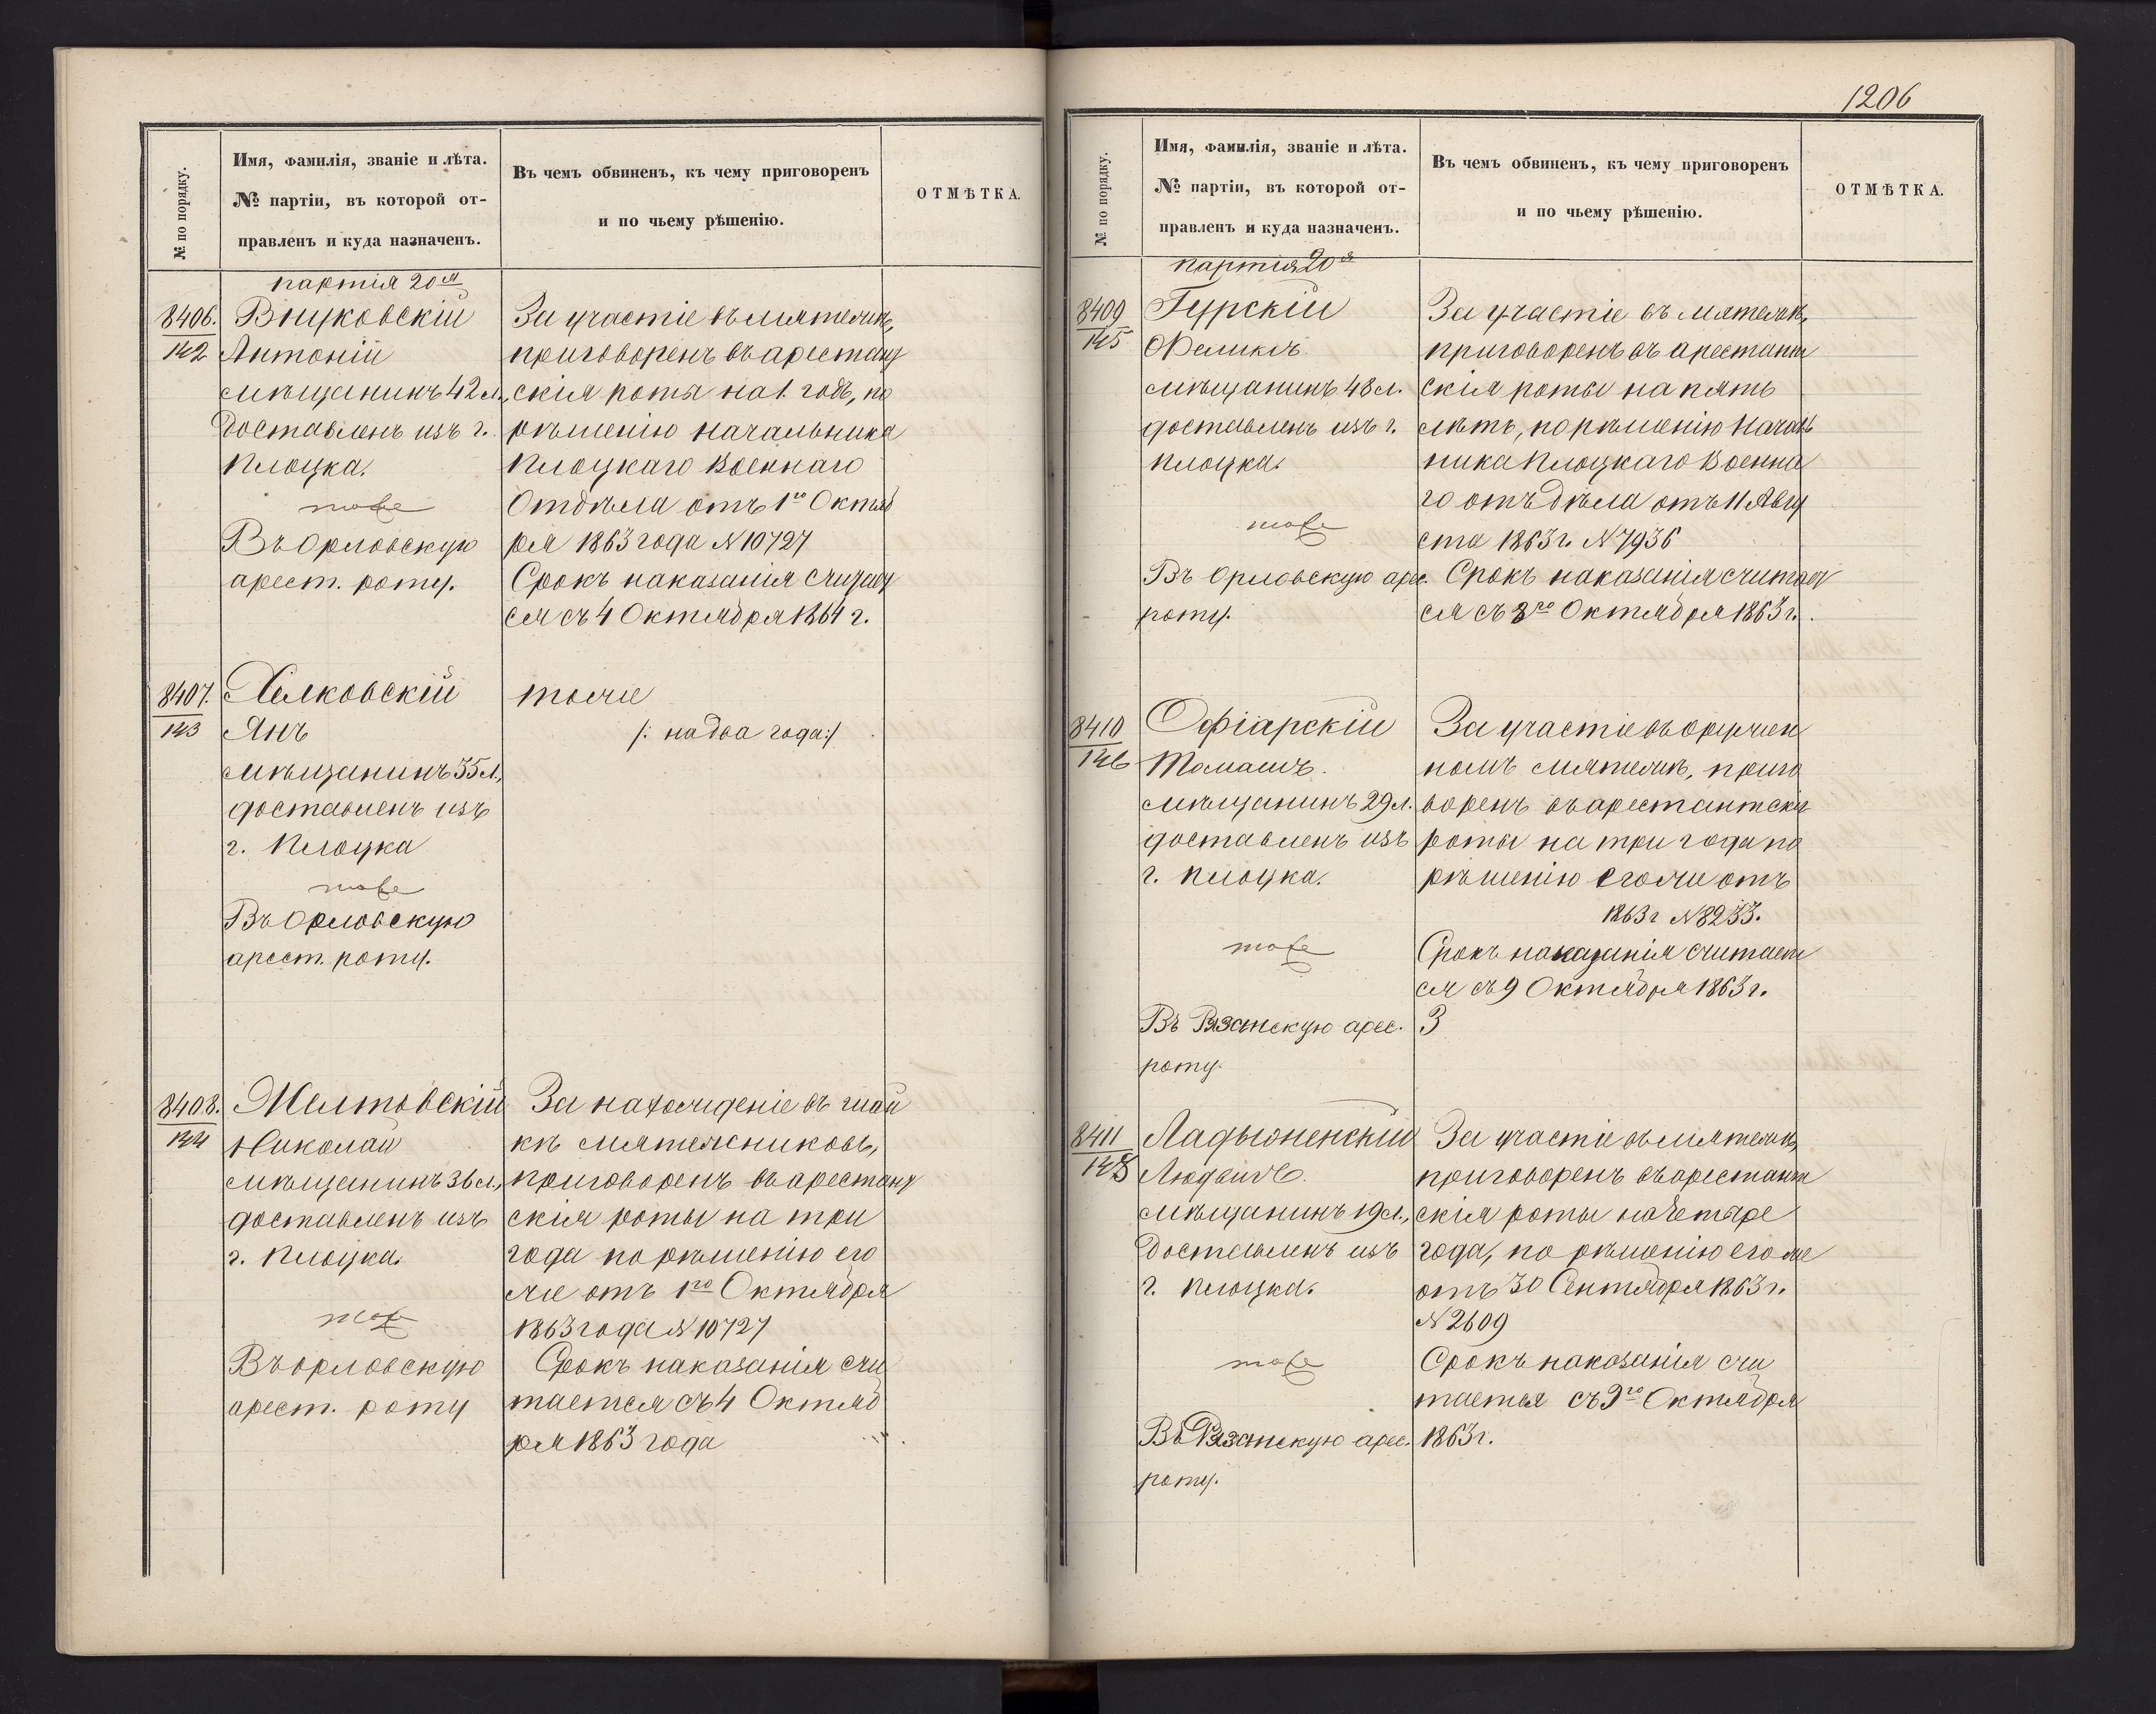 № по порядку.
Имя, фамилія, званіе и лѣта.
№ партіи, въ которой от-
правленъ и куда назначенъ.
Въ чемъ обвиненъ, къ чему приговоренъ
и по чьему рѣшенію.
ОТМѢТКА.
партія 20я
8406.
142
Внуковскій
Антоній
мѣщанинъ 42 л.,
доставленъ изъ г.
Плоцка.
тоже
Въ Орловскую
арест. роту.
За участіе въ мятежѣ,
приговоренъ въ арестант
скія роты на 1. годъ, по
рѣшенію начальника
Плоцкаго Военнаго
Отдѣла отъ 1го Октяб
ря 1863 года N 10727
Срокъ наказанія считает
ся съ 4 Октября 1864 г.
8407.
143
Хелковскій
Янъ
мѣщанинъ 35 л.,
доставленъ изъ
г. Плоцка
тоже
Въ Орловскую
арест. роту.
тоже
/: на два года :/
8408.
144
Желтовскій
Николай
мѣщанинъ 36 л.,
доставленъ изъ
г. Плоцка.
тоже
Въ Орловскую
арест. роту
За нахожденіе въ шай
кѣ мятежниковъ,
приговоренъ въ арестант
скія роты на три
года по рѣшенію его
же отъ 1го Октября
1863 года N 10727
Срокъ наказанія счи
тается съ 4 Октяб
ря 1863 года
1206
№ по порядку.
Имя, фамилія, званіе и лѣта.
№ партіи, въ которой от-
правленъ и куда назначенъ.
Въ чемъ обвиненъ, къ чему приговоренъ
и по чьему рѣшенію.
ОТМѢТКА.
партія 20я
8409
145
Гурскій
Феликсъ.
мѣщанинъ 48 л.
доставленъ изъ г.
Плоцка.
тоже
Въ Орловскую арес.
роту.
За участіе въ мятежѣ,
приговоренъ въ арестант
скія роты на пять
лѣтъ, по рѣшенію Началь
ника Плоцкаго Военна
го отъдѣла отъ 11 Авгу
ста 1863 г. N 7936
Срокъ наказанія считает
ся съ 3го Октября 1863 г.
8410
146
Офіарскій
Томашъ.
мѣщанинъ 29 л.
доставленъ изъ
г. Плоцка.
тоже
Въ Рязанскую арес.
роту.
За участіе въ оружен
номъ мятежѣ, приго
воренъ въ арестантскія
роты на три года по
рѣшенію его же отъ
1863 г N 8233.
Срокъ наказанія считает
ся съ 9 Октября 1863 г.
3
8411
148
Людвигъ.
мѣщанинъ 19 л.,
доставленъ изъ
г. Плоцка.
тоже
Въ Рязанскую арес.
роту.
За участіе въ мятежѣ,
приговоренъ въ арестант
скія роты на четыре
года, по рѣшенію его же
отъ 30 Сентября 1863 г.
N 2609
Срокъ наказанія счи
тается съ 9го Октября
1863 г.